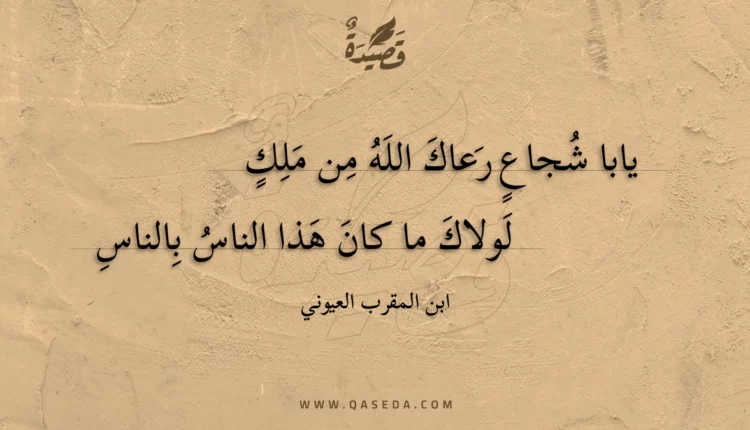 قَصِيدَةٌ
يابا شُجاعٍ رَعاكَ اللَهُ مِن مَلِكٍ
لَولاكَ ما كانَ هَذا الناسُ بِالناسِ
ابن المقرب العيوني
WWW.QASEDA.COM